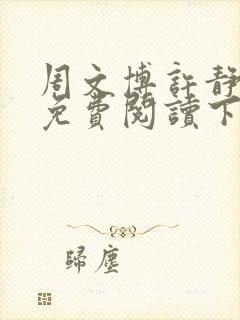 周文博許靜
免費閱讀下
歸塵